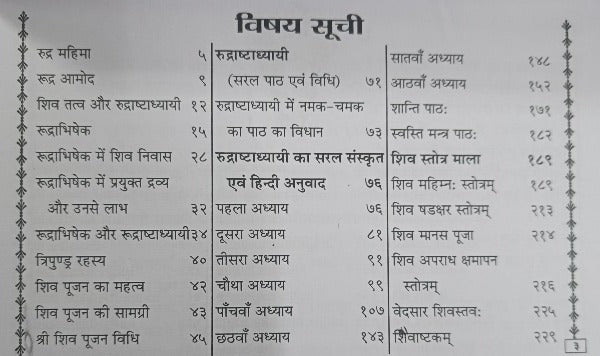 विषय सूची
रुद्र महिमा ५
रूद्र आमोद ९
शिव तत्व और रुद्राष्टाध्यायी १२
रूद्राभिषेक १५
रूद्राभिषेक में शिव निवास २८
रूद्राभिषेक में प्रयुक्त द्रव्य
और उनसे लाभ ३२
रूद्राभिषेक और रूद्राष्टाध्यायी ३४
त्रिपुण्ड्र रहस्य ४०
शिव पूजन का महत्व ४२
शिव पूजन की सामग्री ४३
श्री शिव पूजन विधि ४५
रुद्राष्टाध्यायी
(सरल पाठ एवं विधि) ७१
रुद्राष्टाध्यायी में नमक-चमक
का पाठ का विधान ७३
रुद्राष्टाध्यायी का सरल संस्कृत
एवं हिन्दी अनुवाद ७६
पहला अध्याय ७६
दूसरा अध्याय ८१
तीसरा अध्याय ९१
चौथा अध्याय ९९
पाँचवाँ अध्याय १०७
छठवाँ अध्याय १४३
सातवाँ अध्याय १४८
आठवाँ अध्याय १५२
शान्ति पाठः १७१
स्वस्ति मन्त्र पाठः १८२
शिव स्तोत्र माला १८९
शिव महिम्नः स्तोत्रम् १८९
शिव षडक्षर स्तोत्रम् २१३
शिव मानस पूजा २१४
शिव अपराध क्षमापन
स्तोत्रम् २१६
वेदसार शिवस्तवः २२५
शिवाष्टकम् २२९
३